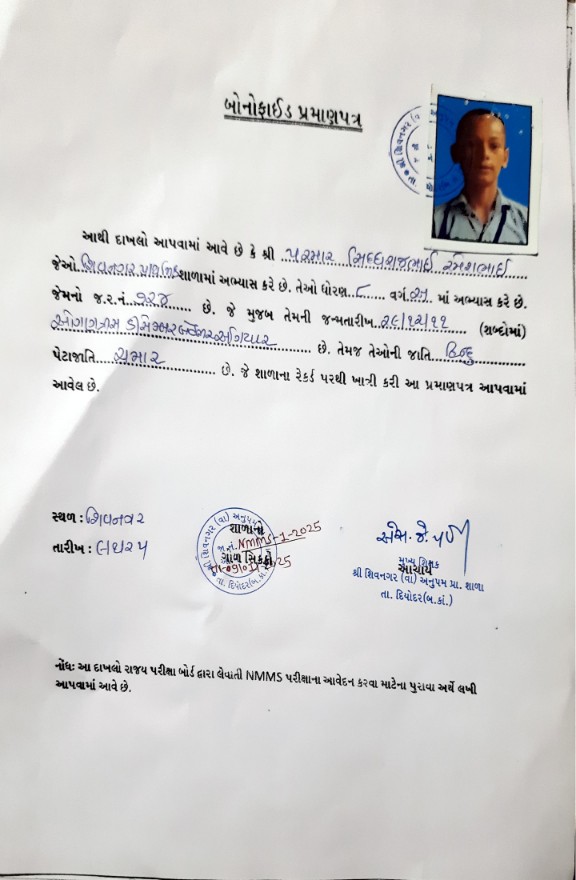 બોનોફાઈડ પ્રમાણપત્ર
આથી દાખલો આપવામાં આવે છે કે શ્રી ..પરમાર સિધ્ધરાજભાઈ રમેશભાઈ
જેઓ..શિવનગર પ્રાથમિક શાળામાં અભ્યાસ કરે છે. તેઓ ધોરણ..૮.... વર્ગ.અ.. માં અભ્યાસ કરે છે.
જેમનો જ.ર.નં..૧૨૪........ છે. જે મુજબ તેમની જન્મતારીખ..૨૯/૧૨/૧૧...... (શબ્દોમાં)
ઓગણત્રીસ ડીસેમ્બર બે હજાર અગિયાર ........ છે. તેમજ તેઓની જાતિ...હિન્દુ......
પેટાજાતિ....ચમાર............ છે. જે શાળાના રેકર્ડ પરથી ખાત્રી કરી આ પ્રમાણપત્ર આપવામાં
આવેલ છે.
સ્થળ : શિવનગર
તારીખ :
શાળાનો
જા.નં. NMMS-1-2025
ગોળ સિક્કો
તા. દિયોદર(બ.કાં.)
મુખ્ય શિક્ષક
આચાર્ય
શ્રી શિવનગર (વા) અનુપમ પ્રા. શાળા
તા. દિયોદર(બ.કાં.)
નોંધઃ આ દાખલો રાજય પરીક્ષા બોર્ડ દ્વારા લેવાતી NMMS પરીક્ષાના આવેદન કરવા માટેના પુરાવા અર્થે લખી
આપવામાં આવે છે.